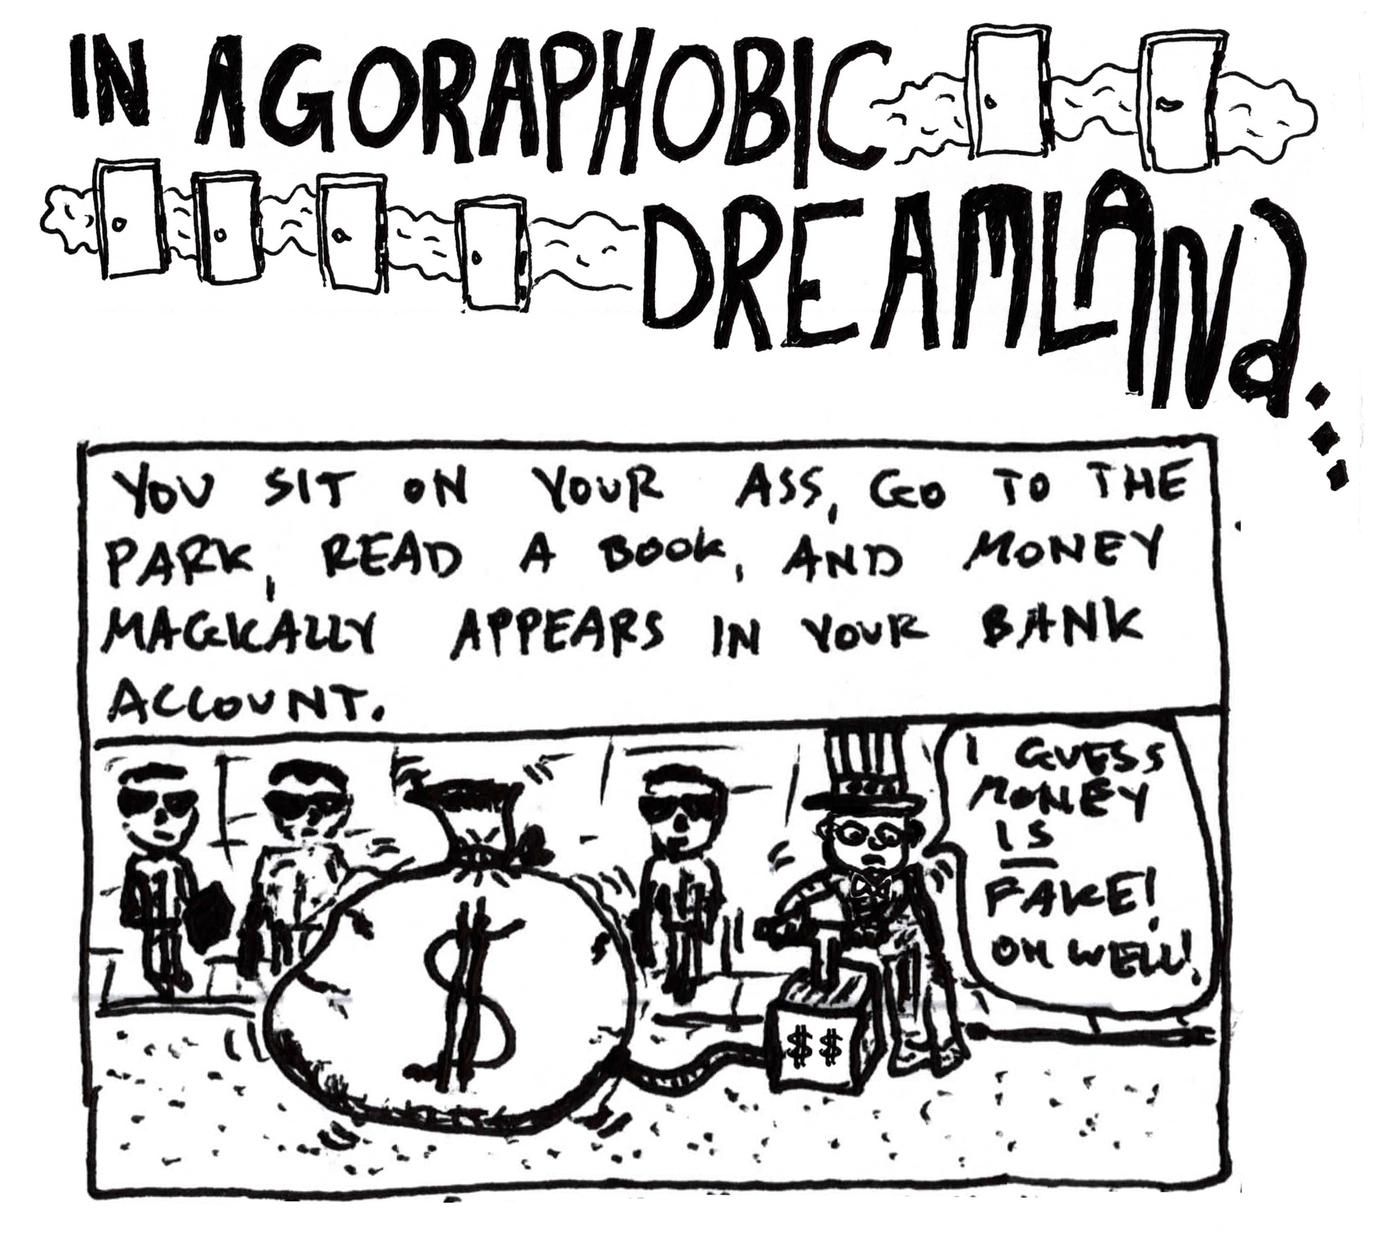 IN AGORAPHOBIC
DREAMLANd...
YOU SIT ON YOUR ASS, GO TO THE
PARK, READ A BOOK, AND MONEY
MAGICALLY APPEARS IN YOUR BANK
ACCOUNT.
I GUESS
MONEY
IS
FAKE!
OH WELL!
$
$$